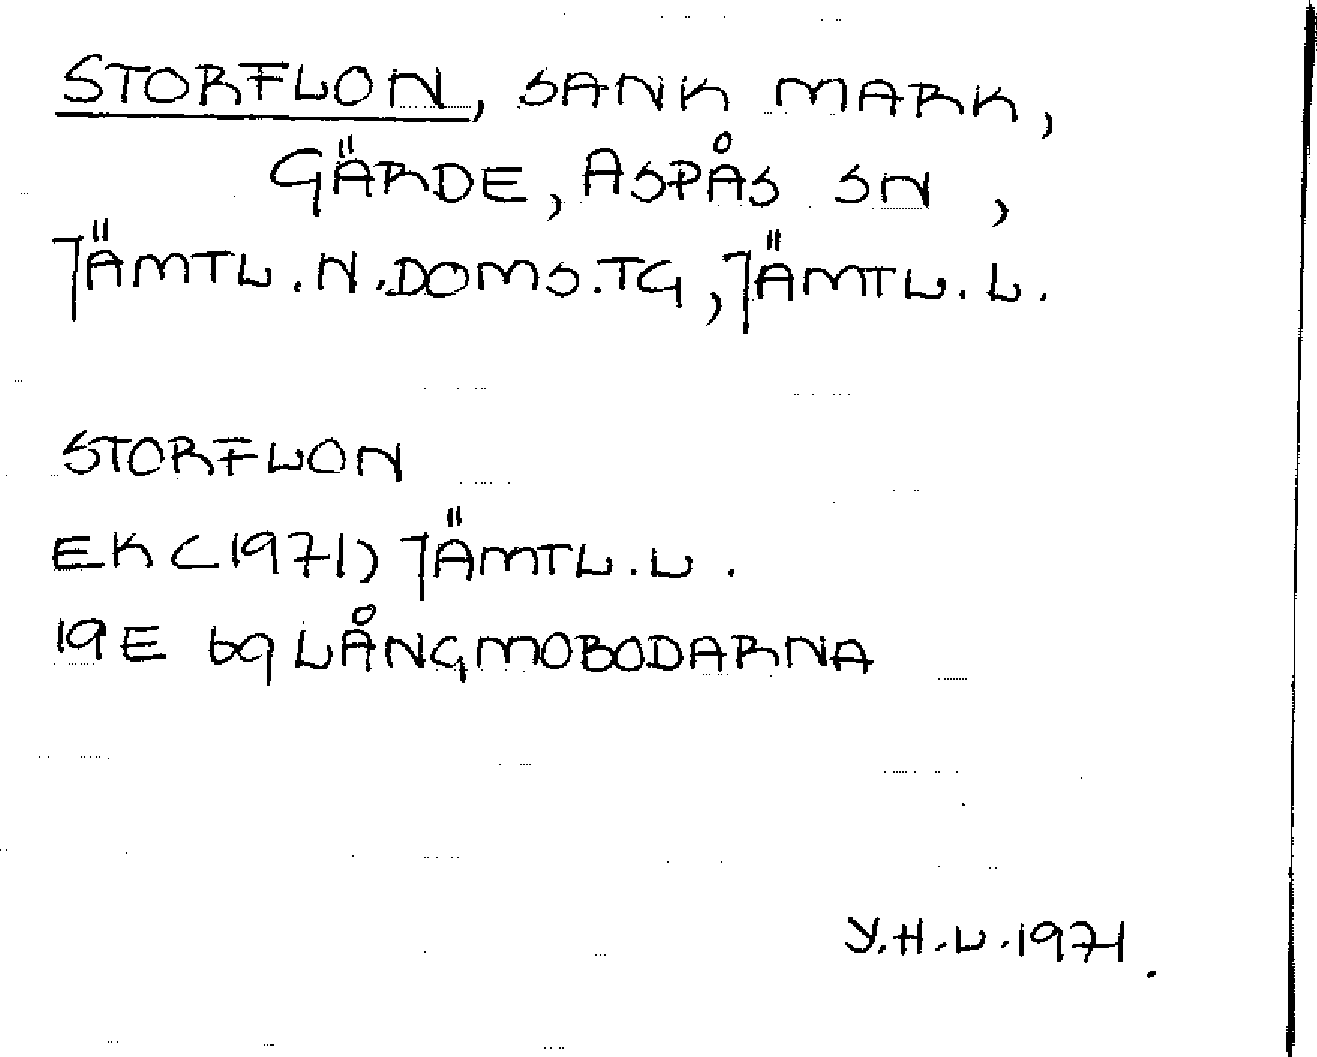 STORFLON, SANK MARK,
GÄRDE, ASPÅS SN,
JÄMTL.N.DOMS.TG, JÄMTL.L.
STORFLON
EK (1971) JÄMTL.L.
19E 6g LÅNGMOBODARNA
Y.H.L.1971.